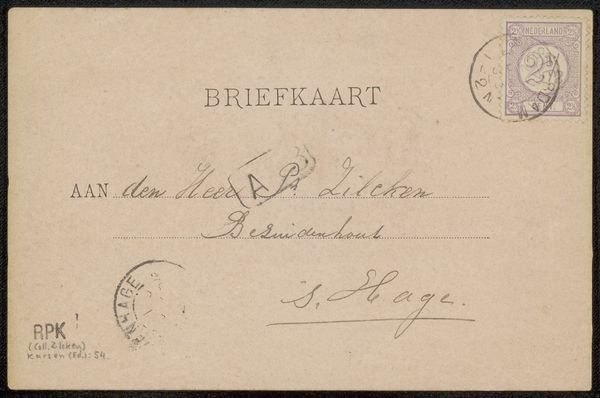 NEDERLAND
2½
1-2N
BRIEFKAART
A
AAN den Heer Ph. Zilcken
Bezuidenhout
s. Hage.
RPK
(Coll. Zilcken)
Karsen (Ed.): 54